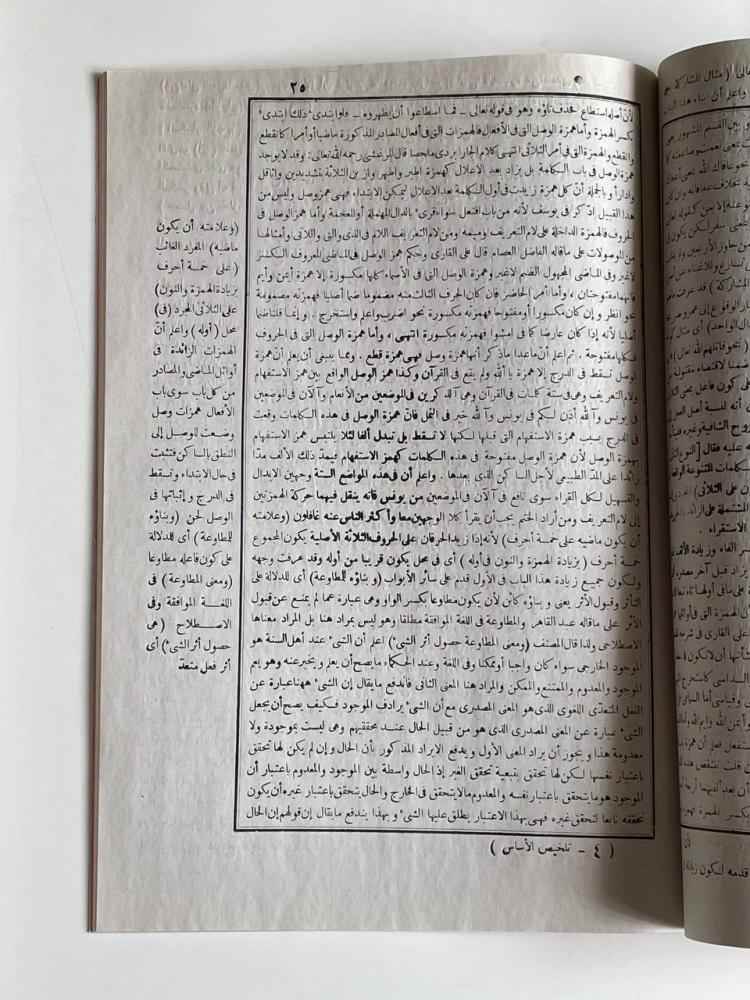 ٢٥
لأن أصله استطاع فحذف تاؤه وهو فى قوله تعالى ـ فما اسطاعوا أن يظهروه ـ فلو ابتدئ ذلك ابتدئ
بكسر الهمزة وأما همزة الوصل التى فى الأفعال فالهمزات التى فى أفعال المصادر المذكورة ماضيا أو أمرا كانقطع
وانقطع والهمزة التى فى أمر الثلاثى انتهى كلام الجار بردى ملخصا قال المرعشى رحمه الله تعالى: وقد لا يوجد
همزة الوصل فى باب الكلمة بل يزاد بعد الاعلال كهمزة اطير واطهر وازين بتشديدين واثاقل
وادارأ وبالجملة أنّ كل همزة زيدت فى أول الكلمة بعد الاعلال ليمكن الابتداء فهى همز وصل وليس من
هذا القبيل ادّكر فى يوسف لأنه من باب افتعل سواء قرئ بالدال المهملة أو المعجمة وأما همز الوصل فى
الحروف فالهمزة الداخلة على لام التعريف وميمه ومن لام التعريف اللام فى الذى والتى واللاتى وأمثالها
من الموصولات على ماقاله الفاضل العصام قال على القارى وحكم همز الوصل فى الماضى المعروف الكسر
لاغير وفى الماضى المجهول الضم لاغير وهمزة الوصل التى فى الأسماء كلها مكسورة إلا همزة أيمن وأيم
فانهما مفتوحتان، وأما أمر الحاضر فان كان الحرف الثالث منه مضموما ضما أصليا فهمزته مضمومة
نحو انظر وإن كان مكسورا أو مفتوحا فهمزته مكسورة نحو اضرب واعلم واستخرج. وإنما قلنا ضما
أصليا لأنه إذا كان عارضا كما فى امشوا فهمزته مكسورة انتهى، وأما همزة الوصل التى فى الحروف
فكلها مفتوحة. ثم اعلم أنّ ماعدا ماذكر أنها همزة وصل فهى همزة قطع. ومما ينبغى أن يعلم أنّ همزة
الوصل تسقط فى الدرج إلا همزة يا ألله ولم يقع فى القرآن وكذا همز الوصل الواقع بين همز الاستفهام
ولام التعريف وهى فى ستة كلمات فى القرآن وهى آلذكرين فى الموضعين من الأنعام وآلآن فى الموضعين
فى يونس وآلله أذن لكم فى يونس وآلله خير فى النمل فانّ همزة الوصل فى هذه الكلمات وقعت
فى الدرج بسبب همزة الاستفهام التى قبلها لكنها لا تسقط بل تبدل ألفا لئلا يلتبس همز الاستفهام
بهمزة الوصل لأن همزة الوصل مفتوحة فى هذه الكلمات كهمز الاستفهام فيمدّ ذلك الألف مدّا
زائدا على المدّ الطبيعى لأجل الساكن الذى بعدها. واعلم أن فى هذه المواضع الستة وجهين الابدال
والتسهيل لكل القراء سوى نافع فى آلآن فى الموضعين من يونس فانه ينقل فيهما حركة الهمزتين
إلى لام التعريف ومن أراد الختم يجب أن يقرأ كلا الوجهين معا وأكثر الناس عنه غافلون (وعلامته
أن يكون ماضيه على خمسة أحرف) لأنه إذا زيد الحرفان على الحروف الثلاثة الأصلية يكون المجموع
خمسة أحرف (بزيادة الهمزة والنون فى أوله) أى فى محل يكون قريبا من أوله وقد عرفت وجهه
ولكون جميع زيادة هذا الباب فى الأول قدم على سائر الأبواب (وبناؤه للمطاوعة) أى للدلالة على
التأثر وقبول الأثر يعنى وبناؤه كائن لأن يكون مطاوعا بكسر الواو وهى عبارة عما لم يمتنع عن قبول
الأثر على ماقاله عبد القاهر والمطاوعة فى اللغة الموافقة مطلقا وهو ليس بمراد هنا بل المراد معناها
الاصطلاحى ولذا قال المصنف (ومعنى المطاوعة حصول أثر الشئ) اعلم أن الشئ عند أهل السنة هو
الموجود الخارجى سواء كان واجبا أو ممكنا وفى اللغة وعند الحكماء مايصح أن يعلم ويخبر عنه وهو يعم
الموجود والمعدوم والممتنع والممكن والمراد هنا المعنى الثانى فاندفع مايقال إن الشئ ههنا عبارة عن
الفعل المتعدّى اللغوى الذى هو المعنى المصدرى مع أن الشئ يرادف الموجود فكيف يصح أن يجعل
الشئ عبارة عن المعنى المصدرى الذى هو من قبيل الحال عند محققيهم وهى ليست بموجودة ولا
معدومة هذا ويجوز أن يراد المعنى الأول ويدفع الايراد المذكور بأن الحال وإن لم يكن لها تحقق
باعتبار نفسها لكن لها تحقق بتبعية تحقق الغير إذ الحال واسطة بين الموجود والمعدوم باعتبار أن
الموجود هو مايتحقق باعتبار نفسه والمعدوم مالا يتحقق فى الخارج والحال يتحقق باعتبار غيره أن يكون
تحققه تابعا لتحقق غيره فهى بهذا الاعتبار يطلق عليها الشئ وبهذا يندفع مايقال إن قولهم إن الحال
(وعلامته أن يكون
ماضيه) المفرد الغائب
(على خمسة أحرف
بزيادة الهمزة والنون)
على الثلاثى المجرد (فى)
محل (أوله) واعلم أنّ
الهمزات الزائدة فى
أوائل الماضى والمصادر
من كل باب سوى باب
الأفعال همزات وصل
وضعت للوصل إلى
النطق بالساكن فتثبت
فى حال الابتداء وتسقط
فى الدرج وإثباتها فى
الوصل لحن (وبناؤه
للمطاوعة) أى للدلالة
على كون فاعله مطاوعا
(ومعنى المطاوعة) فى
اللغة الموافقة وفى
الاصطلاح (هى
حصول أثر الشئ) أى
أثر فعل متعدّ
(٤ ـ تلخيص الأساس)